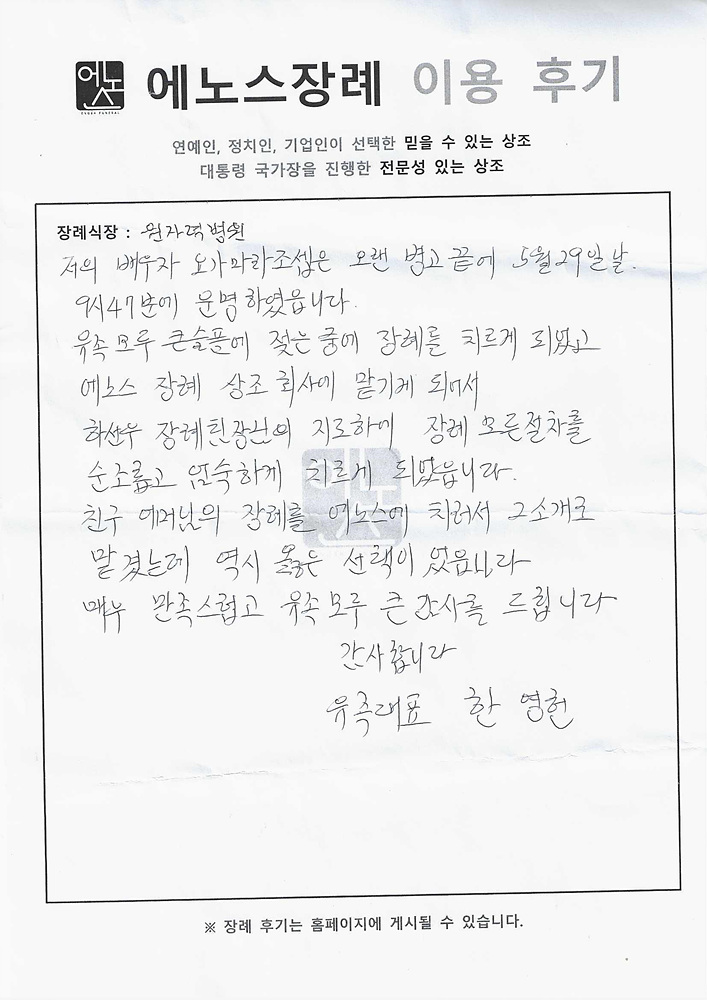 에노스
ENOUS FUNERAL
에노스장례 이용 후기
연예인, 정치인, 기업인이 선택한 믿을 수 있는 상조
대통령 국가장을 진행한 전문성 있는 상조
장례식장 : 원자력병원
저의 배우자 오가타타조셉은 오랜 병고 끝에 5월29일날.
9시47분에 운명하였읍니다.
유족모두 큰슬픔에 젖은 중에 장례를 치르게 되었고
에노스 장례 상조 회사에 맡기게 되어서
하선우 장례팀장님의 지도하에 장례 모든절차를
순조롭고 엄숙하게 치르게 되었읍니다.
친구 어머님의 장례를 에노스에 치러서 그소개로
맡겼는데 역시 옳은 선택이 었읍니다
매우 만족스럽고 유족모두 큰 감사를 드립니다
감사합니다
유족대표 한 영헌
※ 장례 후기는 홈페이지에 게시될 수 있습니다.